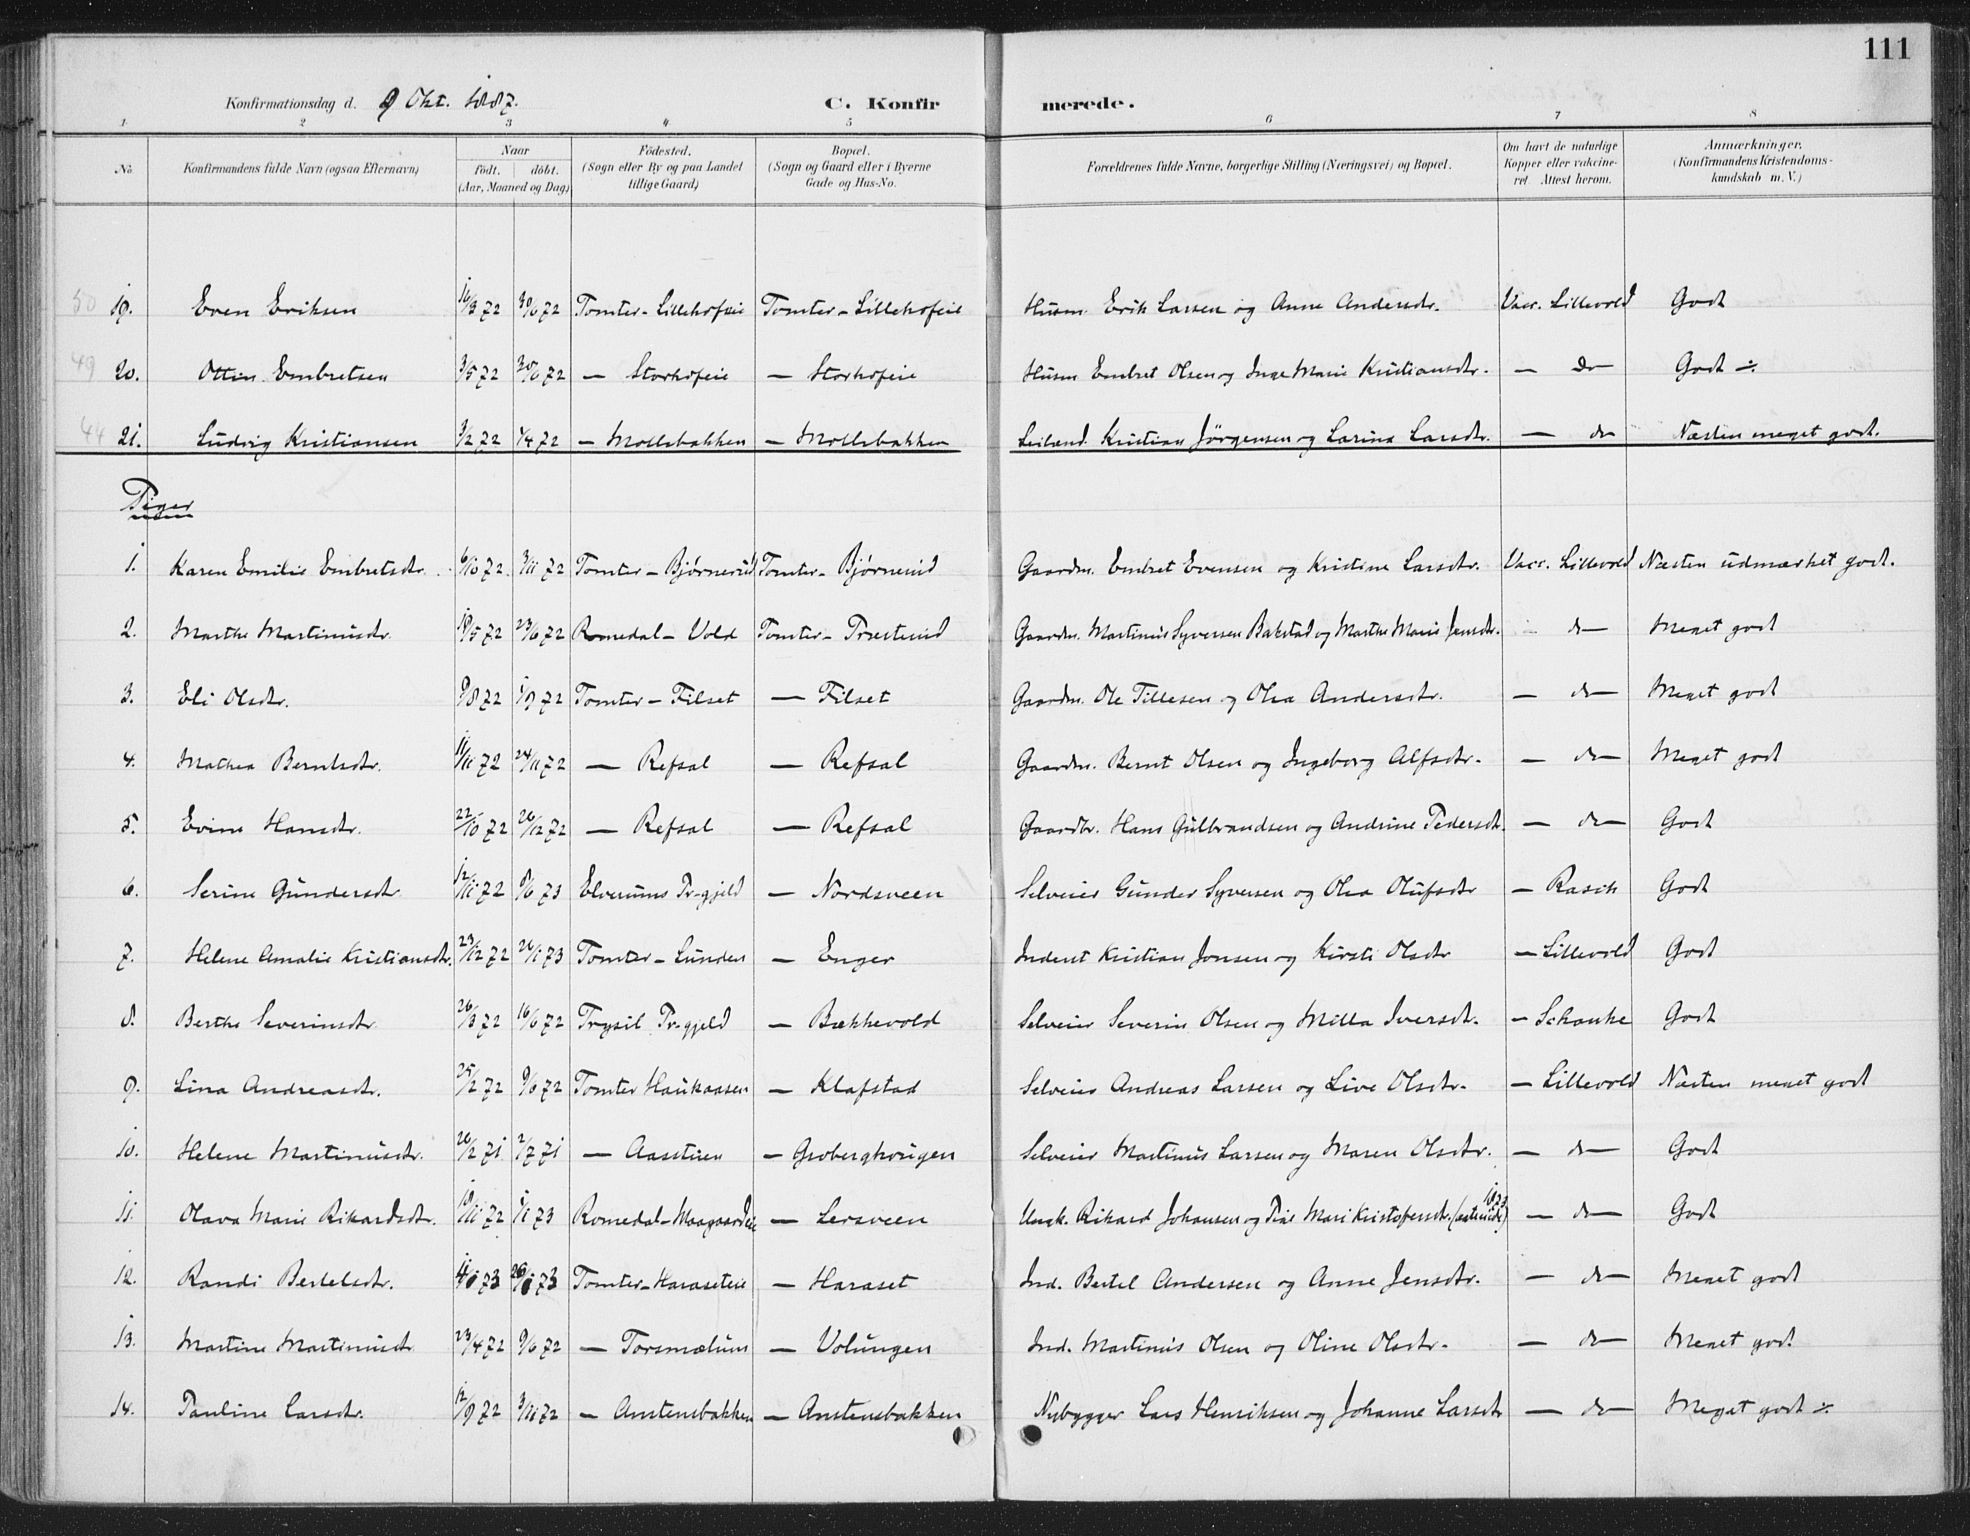 111
Konfirmationsdag d. 9 Okt. 1887. C. Konfirmerede.
1 2 3 4 5 6 7 8
No. Konfirmandens fulde Navn (ogsaa Efternavn) Naar födt. döbt. (Aar, Maaned og Dag) Födested. (Sogn eller By og paa Landet tillige Gaard) Bopæl. (Sogn og Gaard eller i Byerne Gade og Hus-No. Forældrenes fulde Navne, borgerlige Stilling (Næringsvei) og Bopæl. Om havt de naturlige Kopper eller vakcineret. Attest herom. Anmærkninger. (Konfirmandens Kristendomskundskab m. V.)
50 19. Even Eriksen 16/3 72 30/6 72 Tomter - Lillehofeie Tomter - Lillehofeie Husm. Erik Larsen og Anne Andersdtr. Vacc. Lillevold Godt
49 20. Ottin Embretsen 3/5 72 30/6 72 — Storhofeie — Storhofeie Husm Embret Olsen og Inge Marie Kristiansdtr. — do — Godt ÷
44 21. Ludvig Kristiansen 3/2 72 1/4 72 — Mollsbakken — Mollsbakken Leilænd. Kristian Jörgensen og Larine Larsdtr. — do Næsten meget godt.
Piger
1. Karen Emilie Embretsdtr. 6/10 72 3/11 72 Tomter - Bjørnerud Tomter - Bjørnerud Gaardm. Embret Evensen og Kristine Larsdtr. Vacc. Lillevold Næsten udmærket godt.
2. Marthe Martinusdtr. 19/5 72 23/6 72 Romedal - Vold Tomter - Præsterud Gaardm. Martinus Syversen Bakstad og Marthe Marie Jensdtr. — do — Meget godt
3. Eli Olsdtr. 9/8 72 1/9 72 Tomter - Filset — Filset Gaardm. Ole Tillesen og Olea Andersdtr. — do — Meget godt
4. Mathea Berntsdtr. 11/11 72 24/11 72 — Refsal — Refsal Gaardm. Bernt Olsen og Ingeborg Alfsdtr. — do — Meget godt
5. Evine Hansdtr. 22/10 72 26/12 72 — Refsal — Refsal Gaardbr. Hans Gulbrandsen og Andrine Pedersdtr. — do — Godt
6. Serine Gundersdtr. 12/11 72 8/6 73 Elverums Pr-gjeld — Nordsveen Selveier Gunder Syversen og Olea Olufsdtr — Rasch Godt
7. Helene Amalie Kristiansdtr. 29/12 72 26/1 73 Tomter - Lunden — Enger Inderst Kristian Jonsen og Kirsti Olsdtr — Lillevold Godt
8. Berthe Severinsdtr. 26/3 72 16/6 72 Trysil Pr-gjeld — Bækkevold Selveier Severin Olsen og Milla Iversdtr. — Schanke Godt
9. Lina Andreasdtr. 25/2 72 9/6 72 Tomter Haukaasen — Klafstad Selveier Andreas Larsen og Live Olsdtr. — Lillevold Næsten meget godt
10. Helene Martinusdtr. 20/2 71 2/7 71 — Aasstuen — Grobergkrugen Selveier Martinus Larsen og Maren Olsdtr. — do — Godt
11. Olava Marie Rikardsdtr. 19/11 72 1/1 73 Romedal - Maagaardeie — Lersveen Ungk. Rikard Johansen og Pige Mari Kristofersdtr. — do — Godt
12. Randi Bertelsdtr. 73 26/1 73 Tomter - Haraseteie — Haraset Ind. Bertel Andersen og Anne Jensdtr. — do — Meget godt
13. Martine Martinusdtr 23/4 72 9/6 72 — Torsmælum — Volungen Ind. Martinus Olsen og Oline Olsdtr. — do — Meget godt
14. Pauline Larsdtr. 12/9 72 3/11 72 — Anstensbakken — Anstensbakken Nybygger Lars Henriksen og Johanne Larsdtr — do — Meget godt ÷